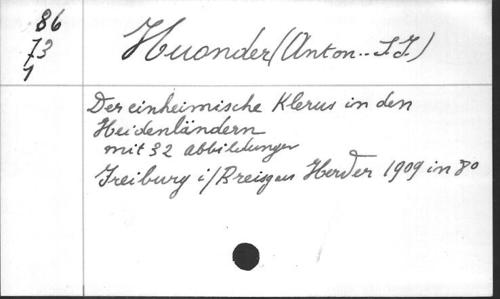 86
73
1
Huonder (Anton.. S.J.)
Der einheimische Klerus in den
Heidenländern
mit 32 abbildungen
Freiburg i/Breisgau Herder 1909 in 8o